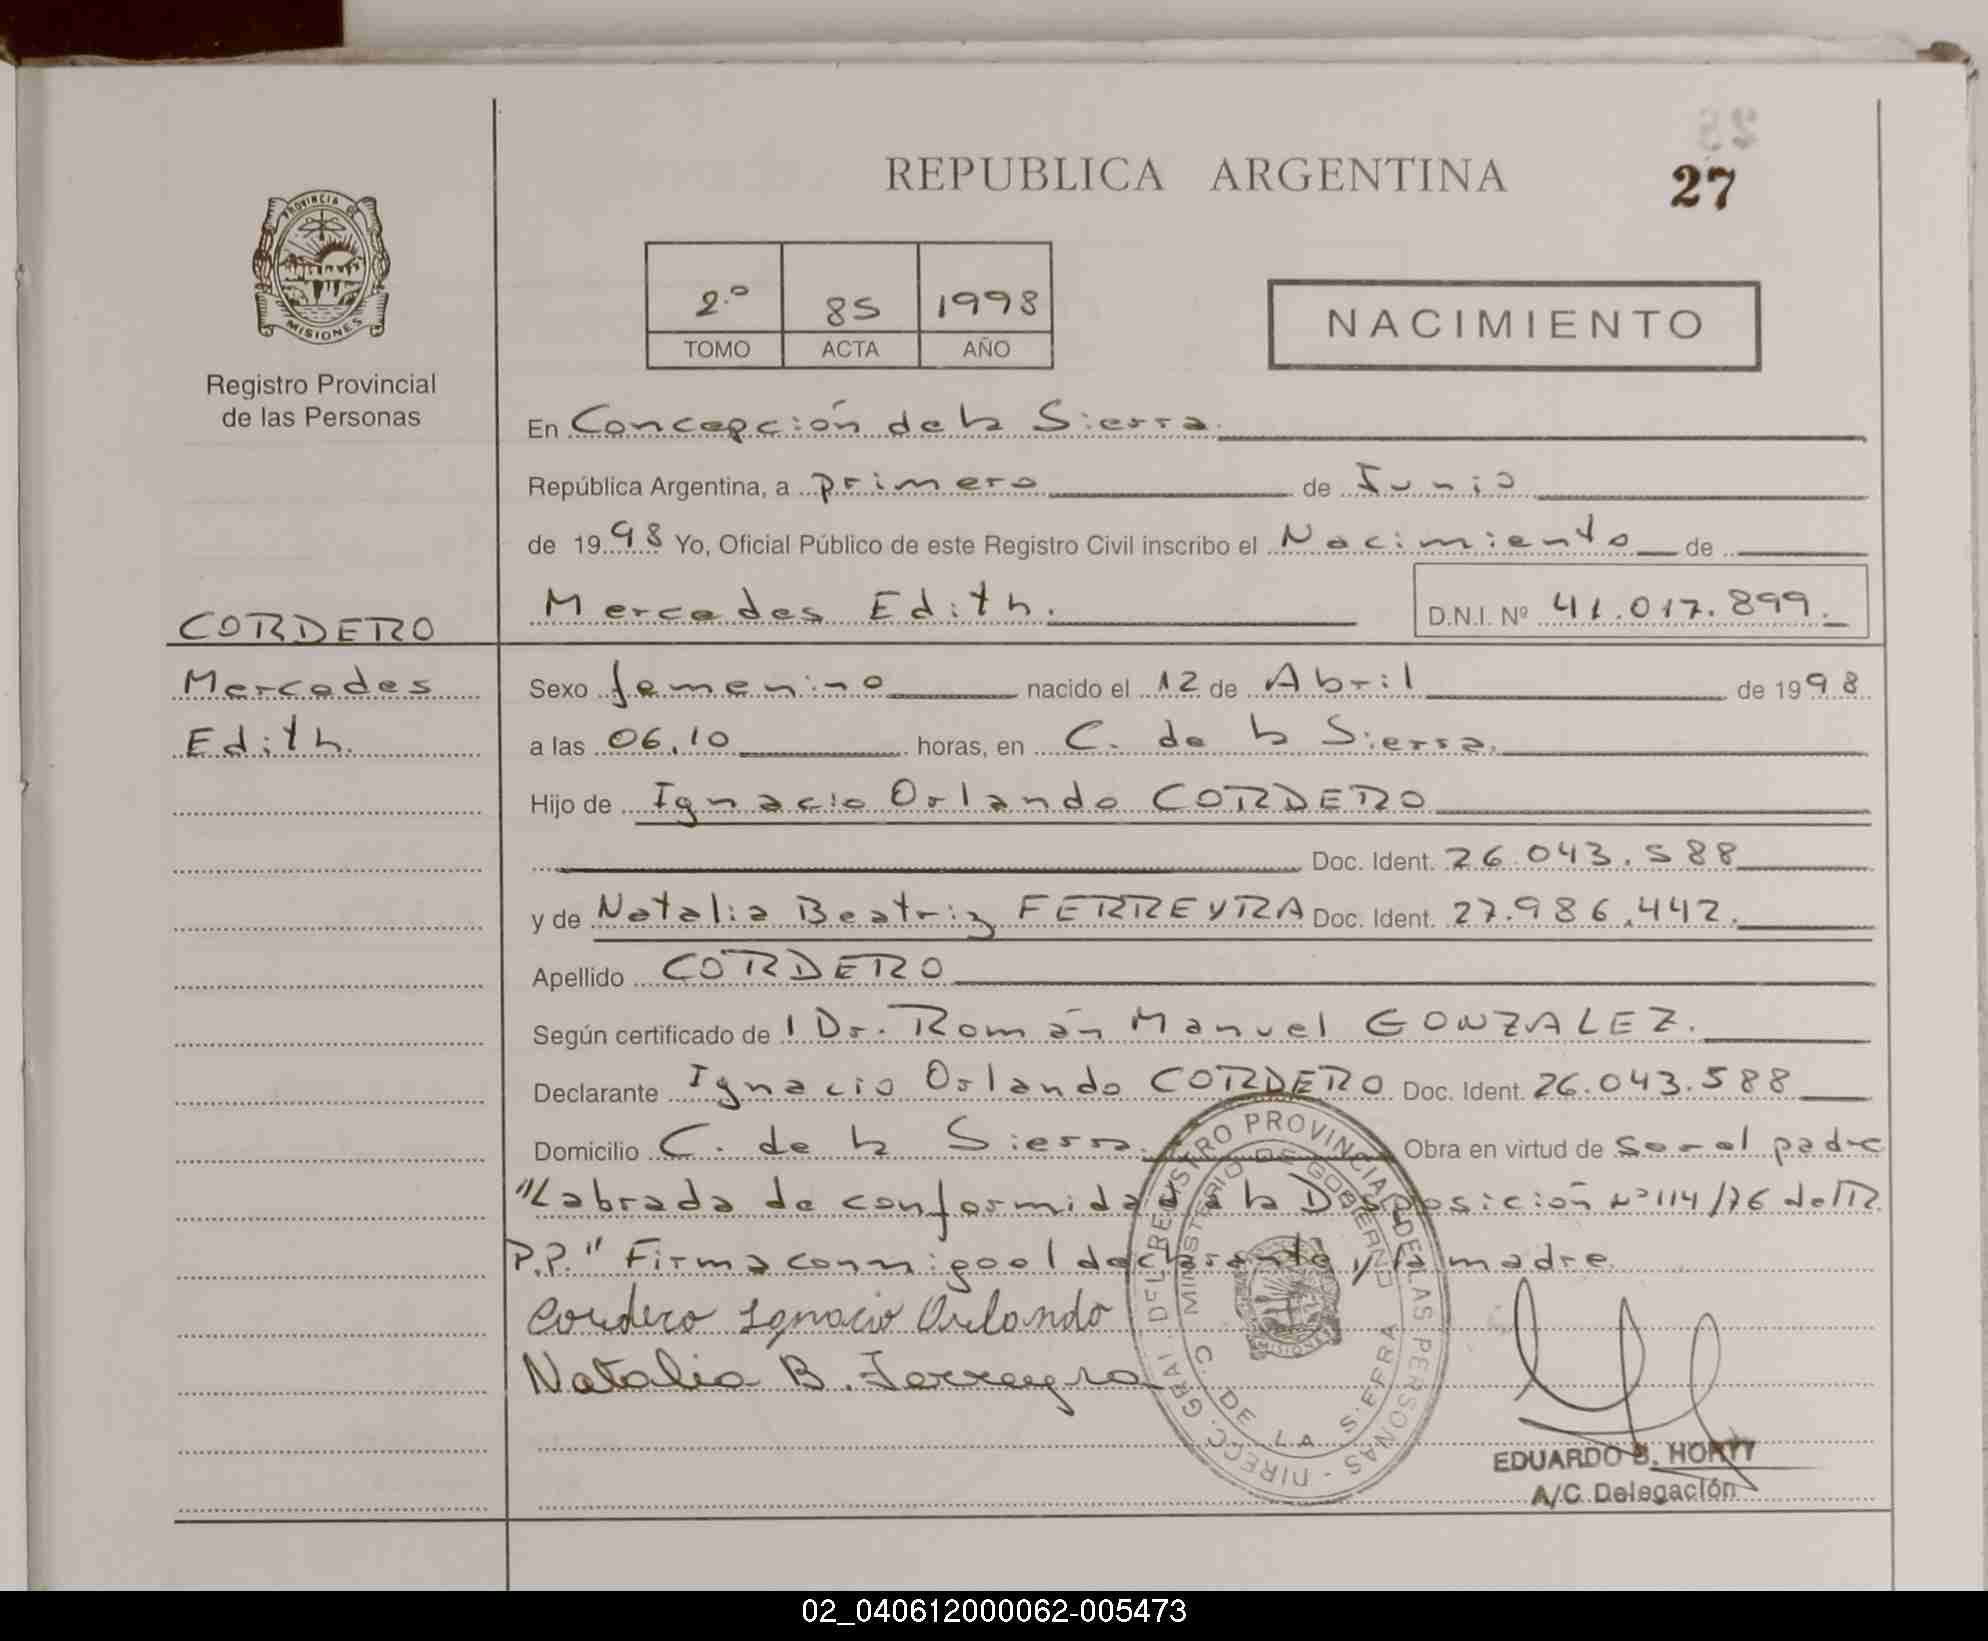 REPUBLICA ARGENTINA
27
PROVINCIA DE
MISIONES
Registro Provincial
de las Personas
2º 85 1998
TOMO ACTA AÑO
NACIMIENTO
En Concepción de la Sierra.
República Argentina, a primero de Junio
de 1998 Yo, Oficial Público de este Registro Civil inscribo el Nacimiento de
Mercedes Edith. D.N.I. Nº 41.017.899.
CORDERO
Mercedes
Edith.
Sexo femenino nacido el 12 de Abril de 1998
a las 06,10 horas, en C. de la Sierra.
Hijo de Ignacio Orlando CORDERO
Doc. Ident. 26.043.588
y de Natalia Beatriz FERREYRA Doc. Ident. 27.986.442.
Apellido CORDERO
Según certificado de l Dr. Román Manuel GONZALEZ.
Declarante Ignacio Orlando CORDERO Doc. Ident. 26.043.588
Domicilio C. de la Sierra. Obra en virtud de ser el padre
"Labrada de conformidad a la Disposición Nº 114/76 del R.
P.P." Firma conmigo el declarante y la madre
Cordero Ignacio Orlando
Natalia B. Ferreyra
DIRECC. GRAL. DEL REGISTRO PROVINCIAL DE LAS PERSONAS
MINISTERIO DE GOBIERNO
C. DE LA SIERRA
MISIONES
EDUARDO
A/C Delegación
02_040612000062-005473